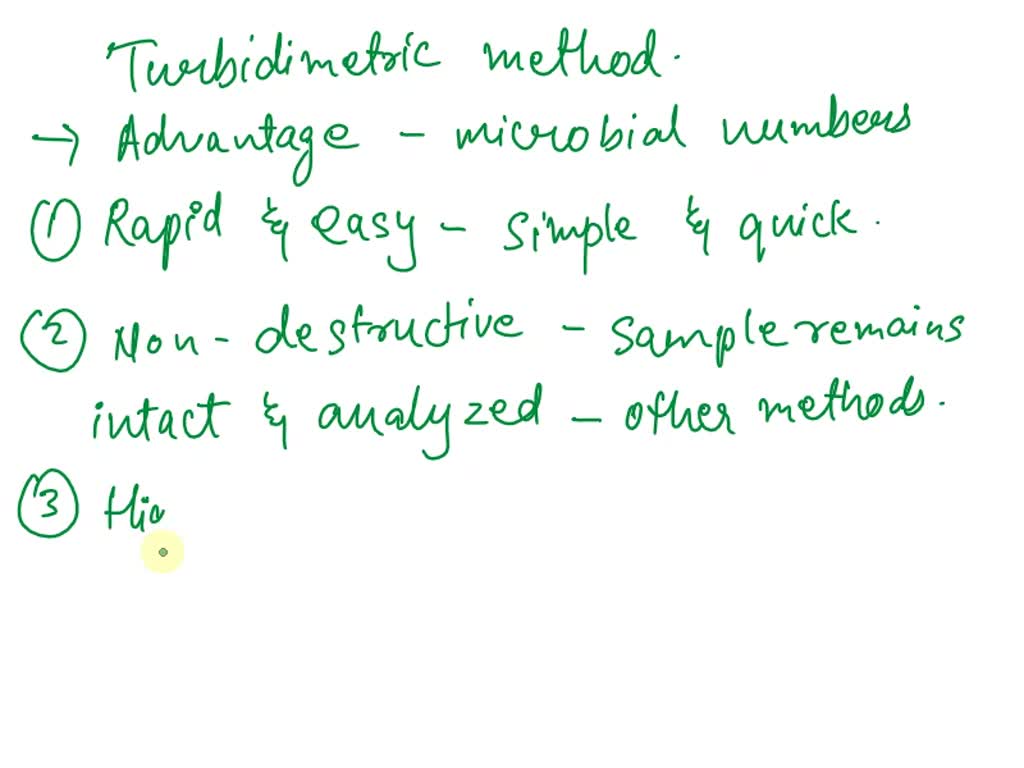 Turbidimetric method.
→ Advantage - microbial numbers
① Rapid & easy - simple & quick.
② Non-destructive - sample remains
intact & analyzed - other methods.
③